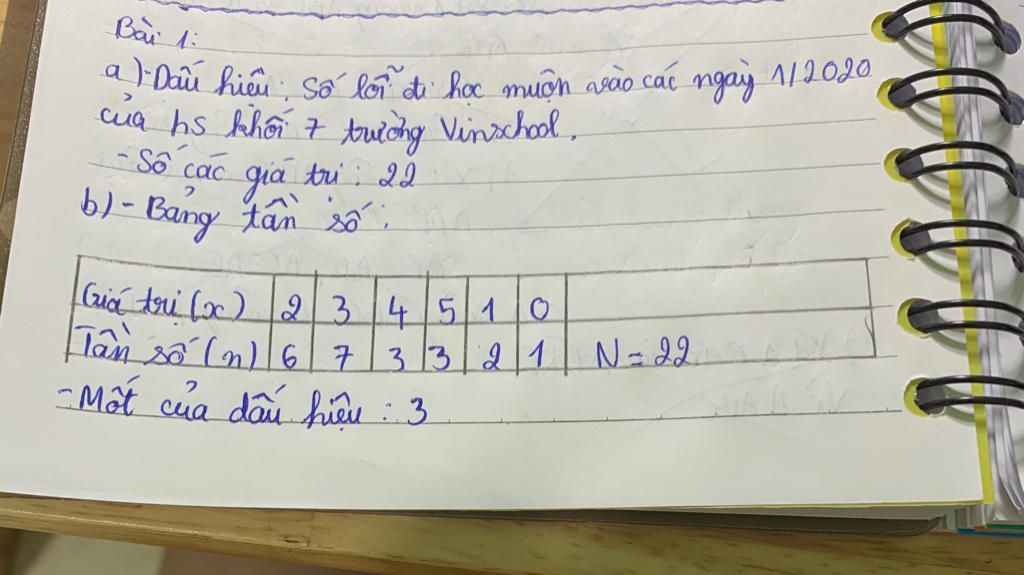 Bài 1:
a)-Dấu hiệu: Số lỗi đi học muộn vào các ngày 1/2020
của hs khối 7 trường Vinschool.
- Số các giá trị: 22
b)- Bảng tần số:
Giá trị (x) 2 3 4 5 1 0
Tần số (n) 6 7 3 3 2 1 N = 22
- Mốt của dấu hiệu : 3